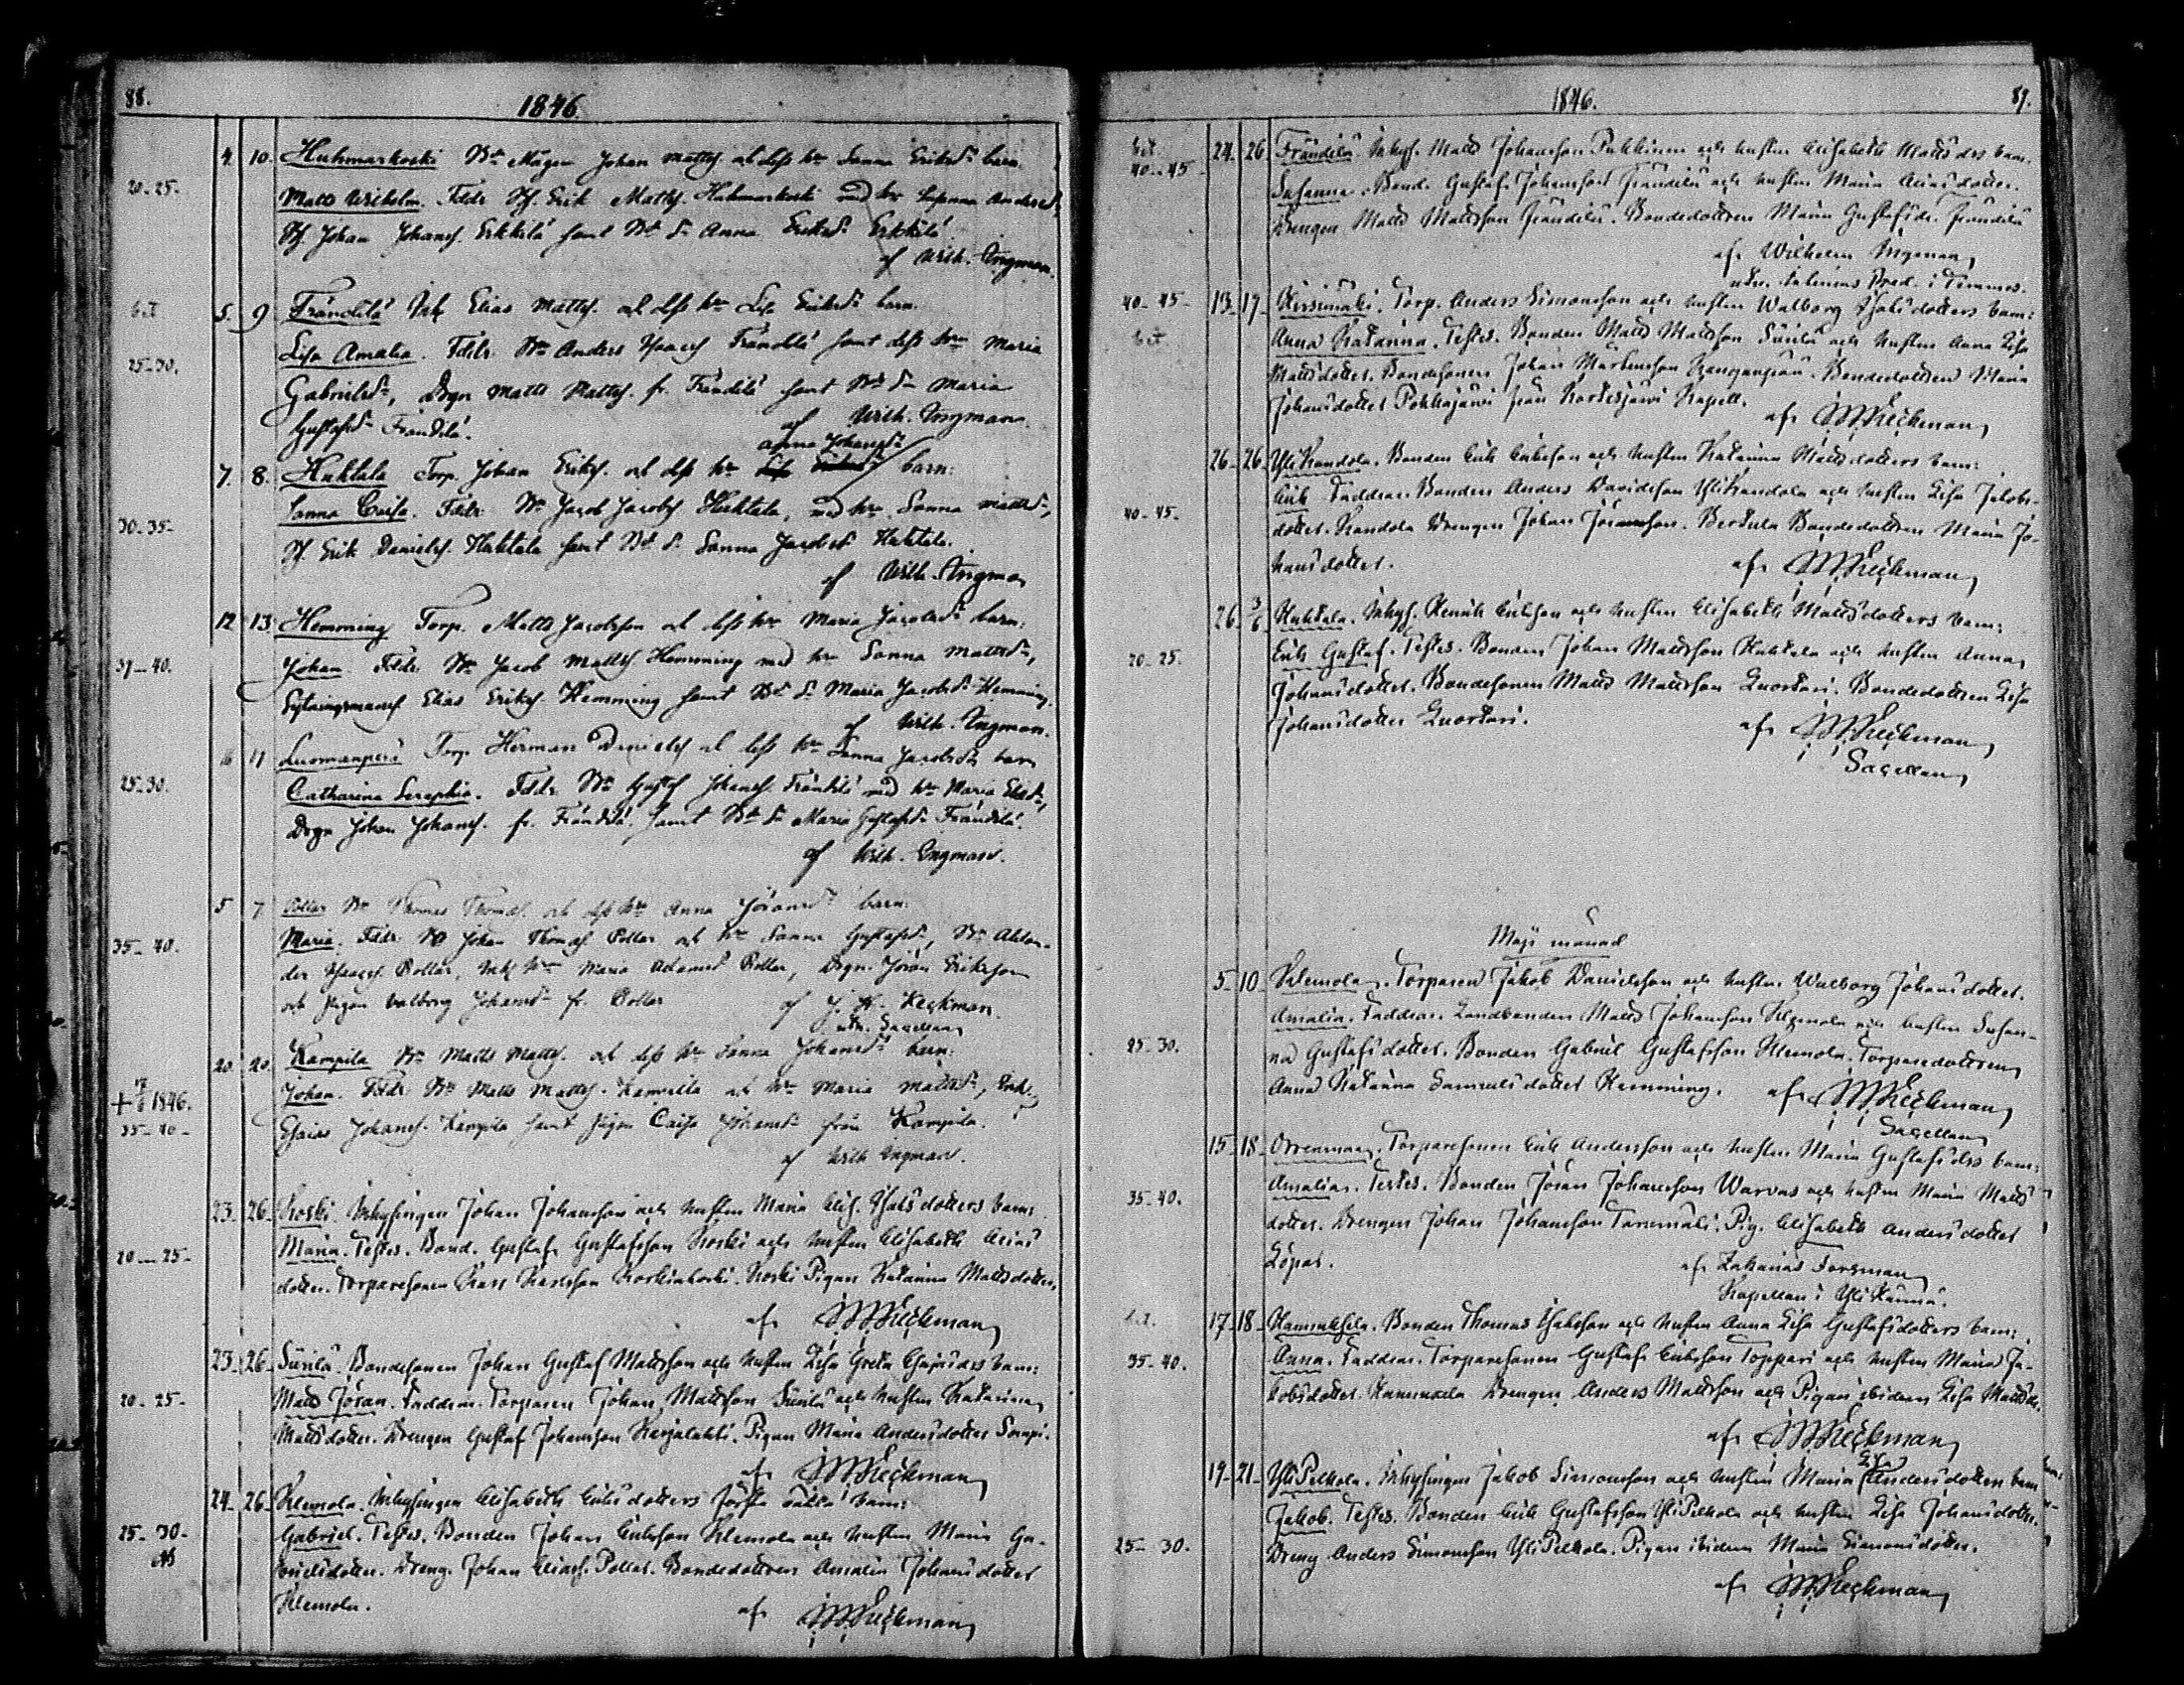 88.
1846
4. 10. Huhmarkoski Bd Mågen Johan Mattss. och dess hu Sanna Eriksd. barn.
20-25. Matts Wilhelm. Fddr. Bs. Erik Mattss. Huhmarkoski med hu Susanna Andersd.
Bs. Johan Johanss. Erkkilä samt Bd. dr. Anna Eriksd. Erkkilä
af Wilh. Ingman.
5. 9 Frändilä Inh. Elias Mattss. och dess hu Lisa Eriksd. barn.
25-30. Lisa Amalia. Fddr. Bn Anders Isacss. Frändilä samt dess hu Maria
Gabrielsd., Drgn Matts Mattss. fr. Frändilä samt Bd. dr. Maria
Gustafsd. Frändilä. af Wilh. Ingman.
Anna Johansd.
7. 8. Huhtala Torp. Johan Erikss. och dess hu Lisa barn:
30-35- Sanna Caisa. Fddr. Bn Jacob Jacobss. Huhtala, med hu Sanna Mattsd.,
Bs. Erik Danielss. Huhtala samt Bd. dr. Sanna Jacobsd. Huhtala.
af Wilh. Ingman
12 13. Hemming Torp. Matts Jacobsson och dess hu Maria Jacobsd. barn.
39-40. Johan Fddr. Bn Jacob Mattss. Hemming med hu Sanna Mattsd.,
Elias Erikss. Hemming samt Bd. dr. Maria Jacobsd. Hemming.
af Wilh. Ingman.
11 Luomanperä Torp. Herman Danielss. och dess hu Sanna Jacobsd. barn
25-30. Catharina Seraphia. Fddr. Bn Gustaf Johanss. Frändilä med hu Maria Eliasd.,
Drgn Johan Johanss. fr. Frändilä, samt Bd. dr. Maria Gustafsd. Frändilä.
af Wilh. Ingman.
5 7 Pollar Bn Thomas Thomass. och dess hu Anna Jöransd. barn:
35-40. Maria. Fddr. Bn Johan Thomass. Pollar och hu Sanna Gustafsd., Bn Alexan-
der Isacss. Pollar, Maria Adamsd. Pollar, Drgn. Jöran Eriksson
och Pigan Valborg Johansd. fr. Pollar af J. H. Keckman.
Sacellan
20. 20. Kampila Bn Matts Mattss. och dess hu Sanna Johansd. barn:
1846. Johan. Fddr. Bn Matts Mattss. Kampila och hu Maria Mattsd.,
35-40- Esaias Johanss. Kampila samt Pigan Caisa Johansd. från Kampila.
af Wilh Ingman.
23. 26. Koski. Inhysingen Johan Johansson och hustru Maria Elis. Isaksdotters barn:
20-25- Maria. Testes. Bond. Gustaf Gustafsson Koski och hustru Elisabeth Elias
dotter. Torparesonen Karl Karlsson Koskinkoski. Koski Pigan Katarina Mattsdotter.
af J H Keckman
23. 26. Siirilä. Bondesonen Johan Gustaf Mattsson och hustru Lisa Greta Esaisdrs barn:
20-25- Matts Jöran. Faddrar. Torparen Johan Mattsson Siirilä och hustru Katarina
Mattsdotter. Drengen Gustaf Johansson Karjalahti. Pigan Maria Andersdotter Sorupi.
af J H Keckman
24. 26. Klemola. Inhysingen Elisabeth Eriksdotters första oäkta barn:
25-30- Gabriel. Testes. Bonden Johan Eriksson Klemola och hustru Maria Ga-
brielsdotter. Dreng. Johan Eliass. Pollar. Bondedottren Amalia Johansdotter
Klemola. af J H Keckman

1846.
89.
40-45- 24. 26 Frändilä Inhys. Matts Johansson Pukkinen och hustru Elisabeth Mattsdrs barn.
Susanna. Bond. Gustaf Johansson Frändilä och hustru Maria Eliasdotter.
Drengen Matts Mattsson Frändilä. Bondedottren Maria Gustafsdr. Frändilä
af Wilhelm Ingman,
Pred. i Temmes.
40-45- 13. 17. Kirsimäki. Torp. Anders Simonsson och hustru Walborg Isaksdotters barn:
Anna Katarina. Testes. Bonden Matts Mattsson Siirilä och hustru Anna Lisa
Mattsdotter. Bondesonen Johan Mårtensson Kanganpää. Bondedottren Maria
Johansdotter Pokkajärvi från Kortesjärvi Kapell.
af J H Keckman
26. 26. YliKandola. Bonden Erik Eriksson och hustru Katarina Mattsdotters barn:
40-45- Erik Faddrar. Bonden Anders Davidsson YliKandola och hustru Lisa Jakobs-
dotter. Kandola Drengen Johan Jöransson. Bertula Bondedottren Maria Jo-
hansdotter. af J H Keckman
26. 3/6 Huhtala. Inhys. Henrik Eriksson och hustru Elisabeth Mattsdotters barn:
20-25. Erik Gustaf. Testes. Bonden Johan Mattsson Huhtala och hustru Anna
Johansdotter. Bondesonen Matts Mattsson Luoktari. Bondedottren Lisa
Johansdotter Luoktari. af J H Keckman
Sacellan
Maji månad
5. 10 Klemola. Torparen Jakob Danielsson och hustru Walborg Johansdotter.
25-30. Amalia. Faddrar. Landbonden Matts Johansson Klemola och hustru Susan-
na Gustafsdotter. Bonden Gabriel Gustafsson Klemola. Torparedottren
Anna Katarina Samuelsdotter Hemming. af J H Keckman
Sacellan
15. 18. Orrenmaa. Torparesonen Erik Andersson och hustru Maria Gustafsdrs barn:
35-40. Amalia. Testes. Bonden Jöran Johansson Warvas och hustru Maria Matts
dotter. Drengen Johan Johansson Tanimäki. Pig. Elisabeth Andersdotter
Löpas. af Zakarias Forsman
Kapellan i Ylikannus.
17. 18. Hanuksela. Bonden Thomas Isaksson och hustru Anna Lisa Gustafsdotters barn:
35-40. Anna. Faddrar. Torparesonen Gustaf Eriksson Toppari och hustru Maria Ja-
kobsdotter. Drengen Anders Mattsson och Pigan ibidem Lisa Mattsdr.
af J H Keckman
19. 21. YliPelkola. Inhysingen Jakob Simonsson och hustru Maria Lisa Andersdotters barn
Jakob. Testes. Bonden Erik Gustafsson YliPelkola och hustru Lisa Johansdotter.
25-30. Dreng Anders Simonsson YliPelkola. Pigan ibidem Maria Simonsdotter.
af J H Keckman